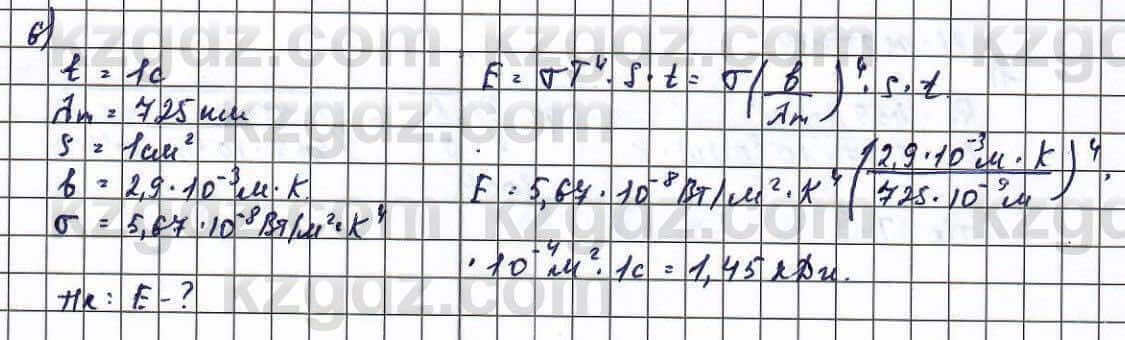 6)
t = 1с
λm = 725 нм
S = 1см²
b = 2,9·10⁻³м·К.
σ = 5,67·10⁻⁸Вт/м²·К⁴
Тк: E - ?
E = σT⁴·S·t = σ(b/λm)⁴·S·t.
E = 5,67·10⁻⁸Вт/м²·К⁴(2,9·10⁻³м·К/725·10⁻⁹м)⁴·
·10⁻⁴м²·1с = 1,45 кДж.
kzgdz.com